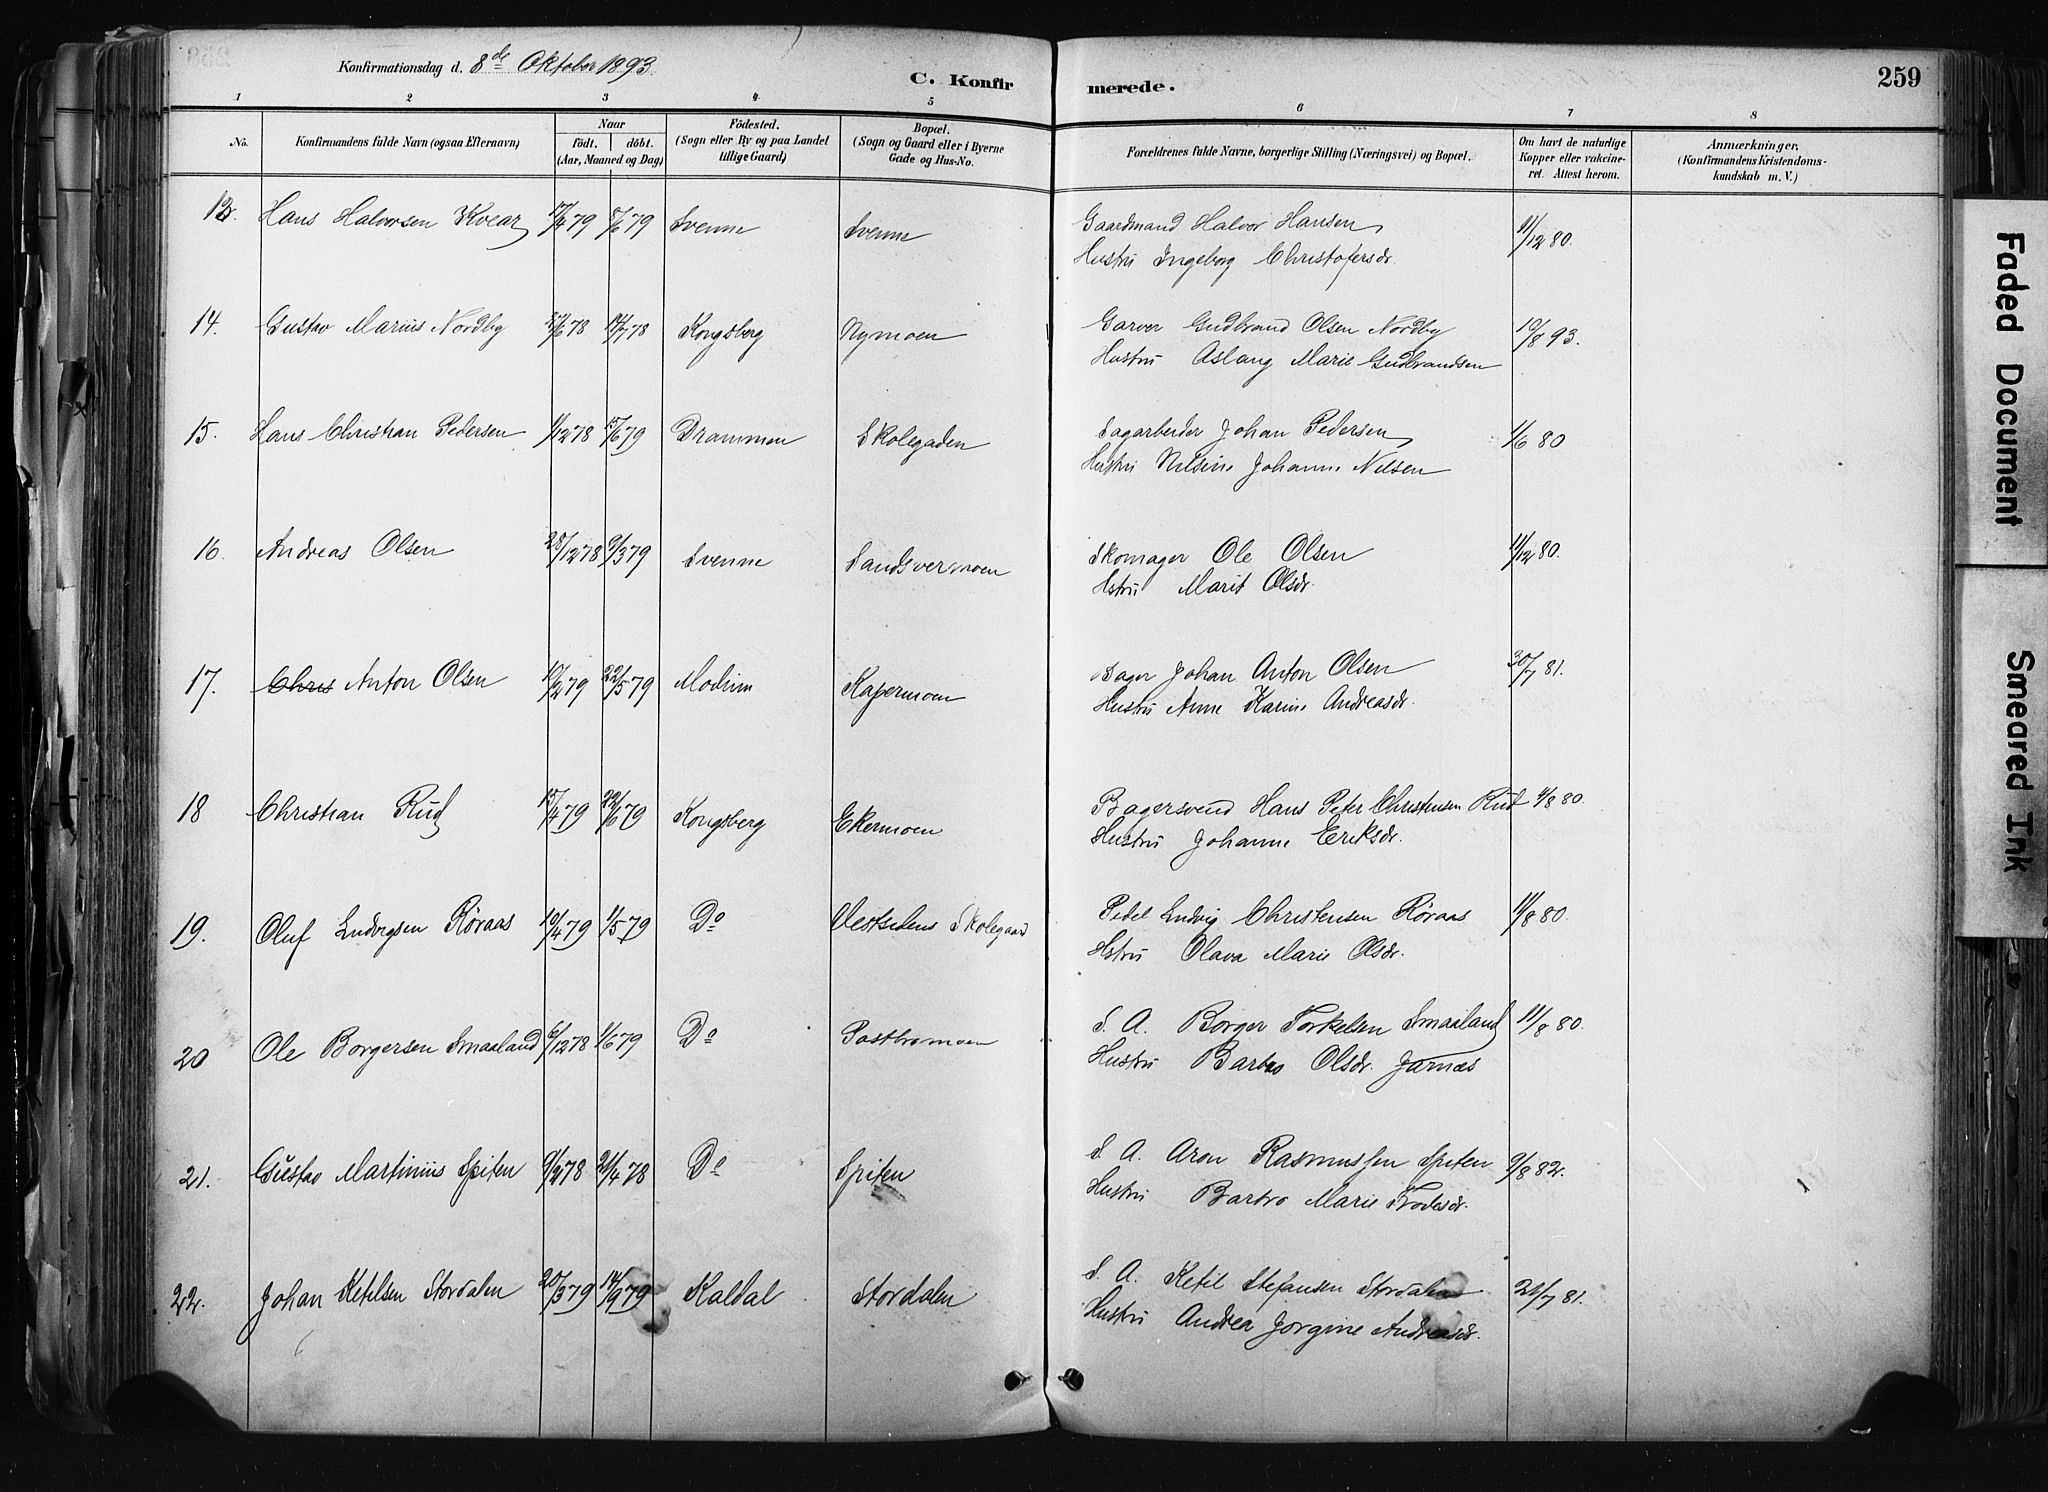 Konfirmationsdag d. 8de Oktober 1893.
C. Konfirmerede.
259
1 2 3 4 5 6 7 8
No.
Konfirmandens fulde Navn (ogsaa Efternavn)
Naar
födt. döbt.
(Aar, Maaned og Dag)
Födested.
(Sogn eller By og paa Landet
tillige Gaard)
Bopæl.
(Sogn og Gaard eller i Byerne
Gade og Hus-No.
Forældrenes fulde Navne, borgerlige Stilling (Næringsvei) og Bopæl.
Om havt de naturlige
Kopper eller vakcine-
ret. Attest herom.
Anmærkninger.
(Konfirmandens Kristendoms-
kundskab m. V.)
13. Hans Halvorsen Kvear 17/4 79 8/6 79 Svenne Svenne Gaardmand Halvor Hansen 11/12 80.
Hustru Ingeborg Christofersdr.
14. Gustav Marius Nordby 27/6 78 14/7 78 Kongsberg Nymoen Garver Gudbrand Olsen Nordby 10/8 93.
Hustru Aslaug Marie Gudbrandsen
15. Hans Christian Pedersen 1/12 78 15/6 79 Drammen Skolegaden Sagarbeider Johan Pedersen 1/6 80
Hustru Nilsine Johanne Nilsen
16. Andreas Olsen 28/12 78 9/3 79 Svenne Sandsvermoen Skomager Ole Olsen 11/12 80.
Hstru Marit Olsdr.
17. Chris Anton Olsen 10/2 79 22/5 79 Modum Kapermoen Bager Johan Anton Olsen 30/7 81.
Hustru Anne Karine Andreasdr.
18 Christian Rud 15/4 79 22/6 79 Kongsberg Ekermoen Bagersvend Hans Peter Christensen Rud 4/8 80.
Hustru Johanne Eriksdr.
19. Oluf Ludvigsen Röraas 10/4 79 1/5 79 Do Vestsidens Skolegaard Pedel Ludvig Christensen Röraas 11/8 80.
Hstru Olava Marie Olsdr.
20 Ole Borgersen Smaaland 6/12 78 1/6 79 Do Pastbromoen S. A. Borger Torkelsen Smaaland 11/8 80.
Hustru Barbro Olsdr. Jarnæs
21. Gustav Martinius Spiten 9/2 78 21/4 78 Do Spiten S. A. Aron Rasmussen Spiten 9/8 82.
Hustru Barbro Marie Frodesdr.
22. Johan Ketilsen Stordalen 20/3 79 14/9 79 Kaldal Stordalen S. A. Ketil Stefansen Stordalen 21/7 81.
Hustru Andrea Jorgine Andreasdr.
Faded Document
Smeared Ink